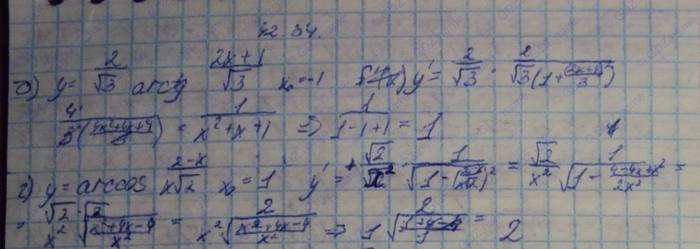 42.34.
б) y = 2/√3 arctg (2x+1)/√3 x₀=-1 y' = 2/√3 · 2/(√3(1+(2x+1)²/3))
4/(3(4x²+4x+4)) = 1/(x²+x+1) ⇒ 1/(1-1+1) = 1
г) y = arccos (2-x)/(x√2) x₀ = 1 y' = √2/x² · 1/√(1-()²) = √2/x² · 1/√(1-(4-4x+x²)/2x²) =
= √2·√2/(x²√((x²+4x-4)/x²)) = 2/(x²√((x²+4x-4)/x²)) ⇒ 2/(1√((1+4-4)/1)) = 2